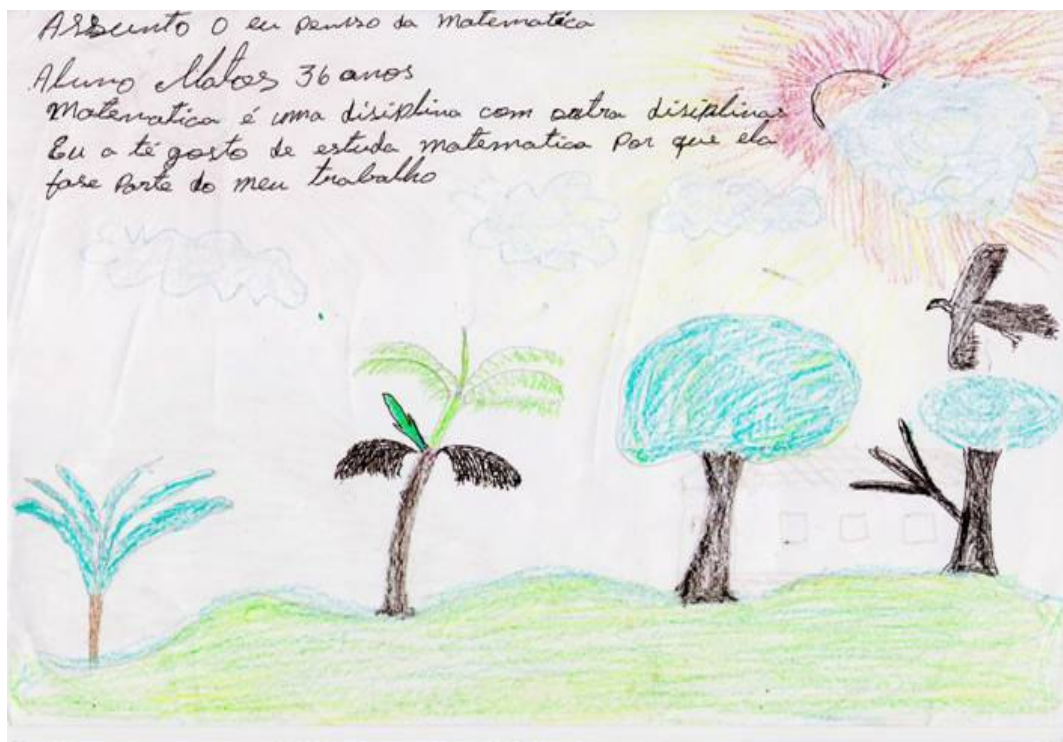 Assunto O eu penso da Matematica
Aluno Matos 36 anos
Matematica é uma disiplina com outra disiplinas
Eu a té gosto de estuda matematica Por que ela
fase Parte do meu trabalho